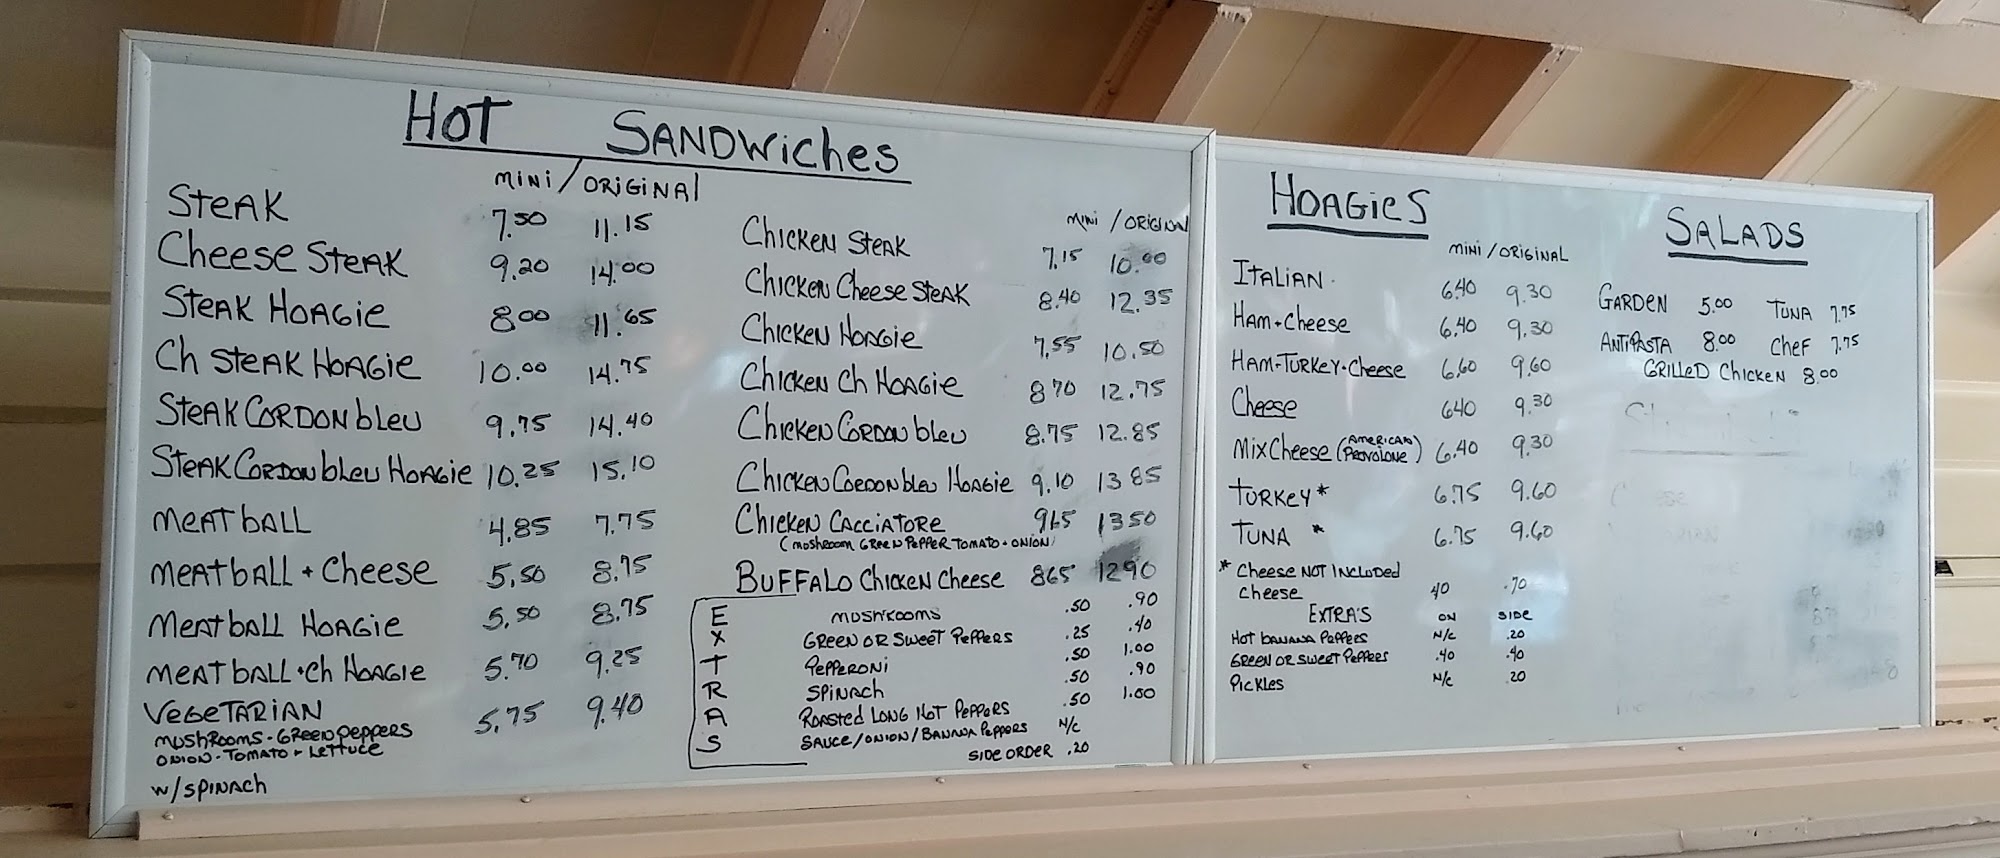 HOT SANDWiches
MINI / ORIGINAL
STEAK 7.50 11.15
Cheese STEAK 9.20 14.00
STEAK HOAGIE 8.00 11.65
Ch STEAK HOAGIE 10.00 14.75
STEAK CORDON bleu 9.75 14.40
STEAK CORDON bleu HOAGIE 10.25 15.10
MEATBALL 4.85 7.75
MEATBALL + Cheese 5.50 8.75
MEATBALL HOAGIE 5.50 8.75
MEATBALL + Ch HOAGIE 5.70 9.25
VEGETARIAN 5.75 9.40
MUSHROOMS - GREEN PEPPERS
ONION - TOMATO + LETTUCE
W/SPINACH
MINI / ORIGINAL
CHICKEN STEAK 7.15 10.00
CHICKEN CHEESE STEAK 8.40 12.35
CHICKEN HOAGIE 7.55 10.50
CHICKEN Ch HOAGIE 8.70 12.75
CHICKEN CORDON bleu 8.75 12.85
CHICKEN CORDON bleu HOAGIE 9.10 13.85
CHICKEN CACCIATORE 13.50
(MUSHROOM GREEN PEPPER TOMATO + ONION)
BUFFALO CHICKEN CHEESE 865 1290
EXTRAS
MUSHROOMS .50 .90
GREEN OR SWEET PEPPERS .25 .40
PEPPERONI .50 1.00
SPINACH .50 .90
ROASTED LONG HOT PEPPERS .50 1.00
SAUCE/ONION/BANANA PEPPERS N/C
SIDE ORDER .20
HOAGIES
MINI / ORIGINAL
ITALIAN 6.40 9.30
HAM + CHEESE 6.40 9.30
HAM - TURKEY - CHEESE 6.60 9.60
CHEESE 6.40 9.30
MIX CHEESE (AMERICAN PROVOLONE) 6.40 9.30
TURKEY * 6.75 9.60
TUNA * 6.75 9.60
* CHEESE NOT INCLUDED
CHEESE .40 .70
EXTRA'S ON SIDE
HOT BANANA PEPPERS N/C .20
GREEN OR SWEET PEPPERS .40 .40
PICKLES N/C .20
SALADS
GARDEN 5.00 TUNA 7.75
ANTIPASTA 8.00 CHEF 7.75
GRILLED CHICKEN 8.00